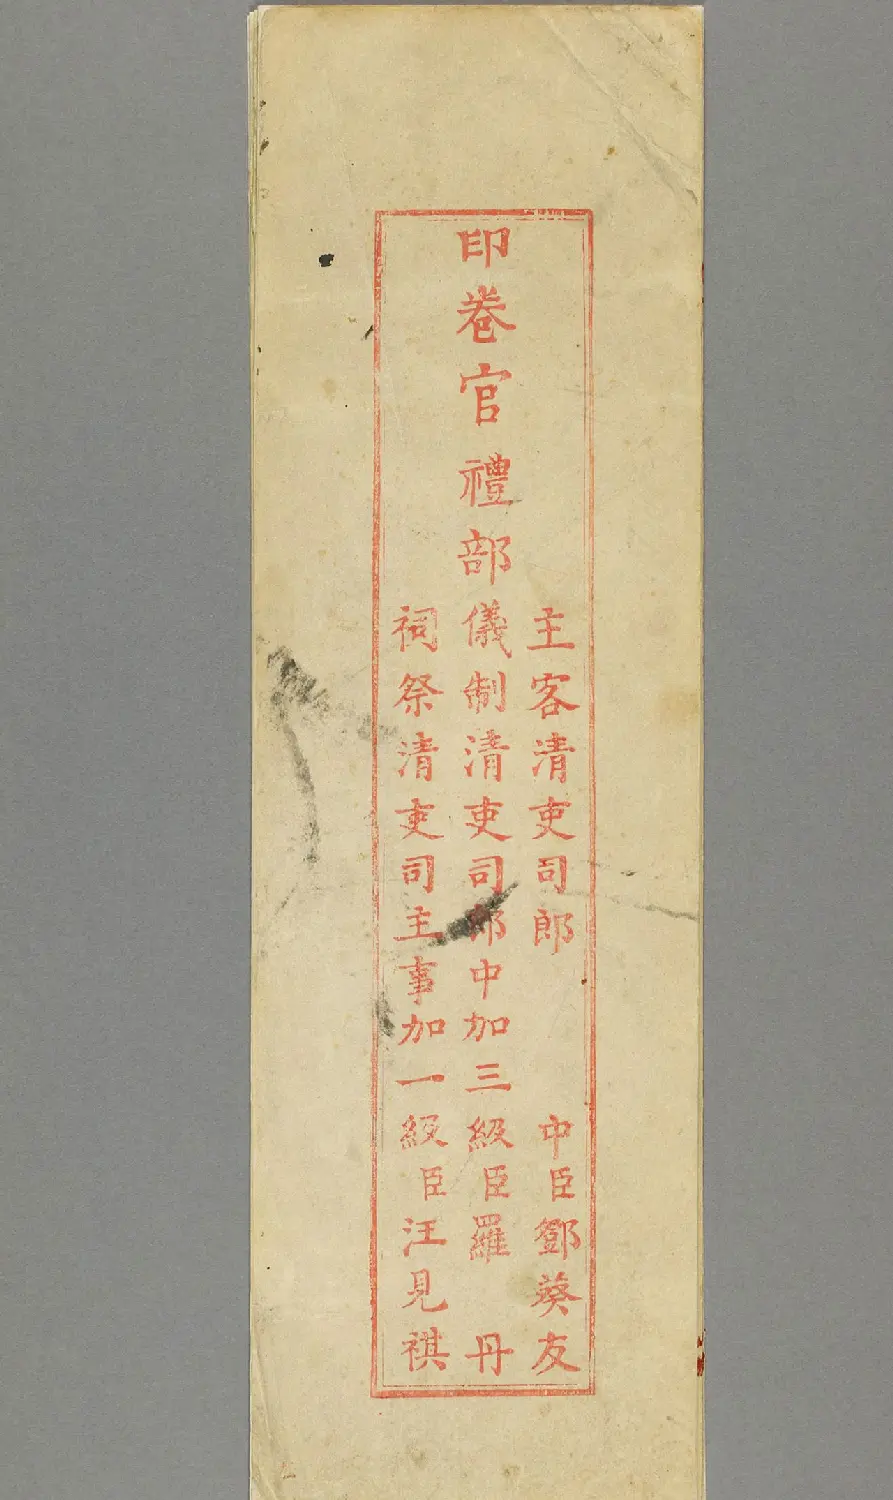 主客清吏司郎中臣鄧葵友
印卷官禮部儀制清吏司郎中加三級臣羅丹
祠祭清吏司主事加一級臣汪見祺